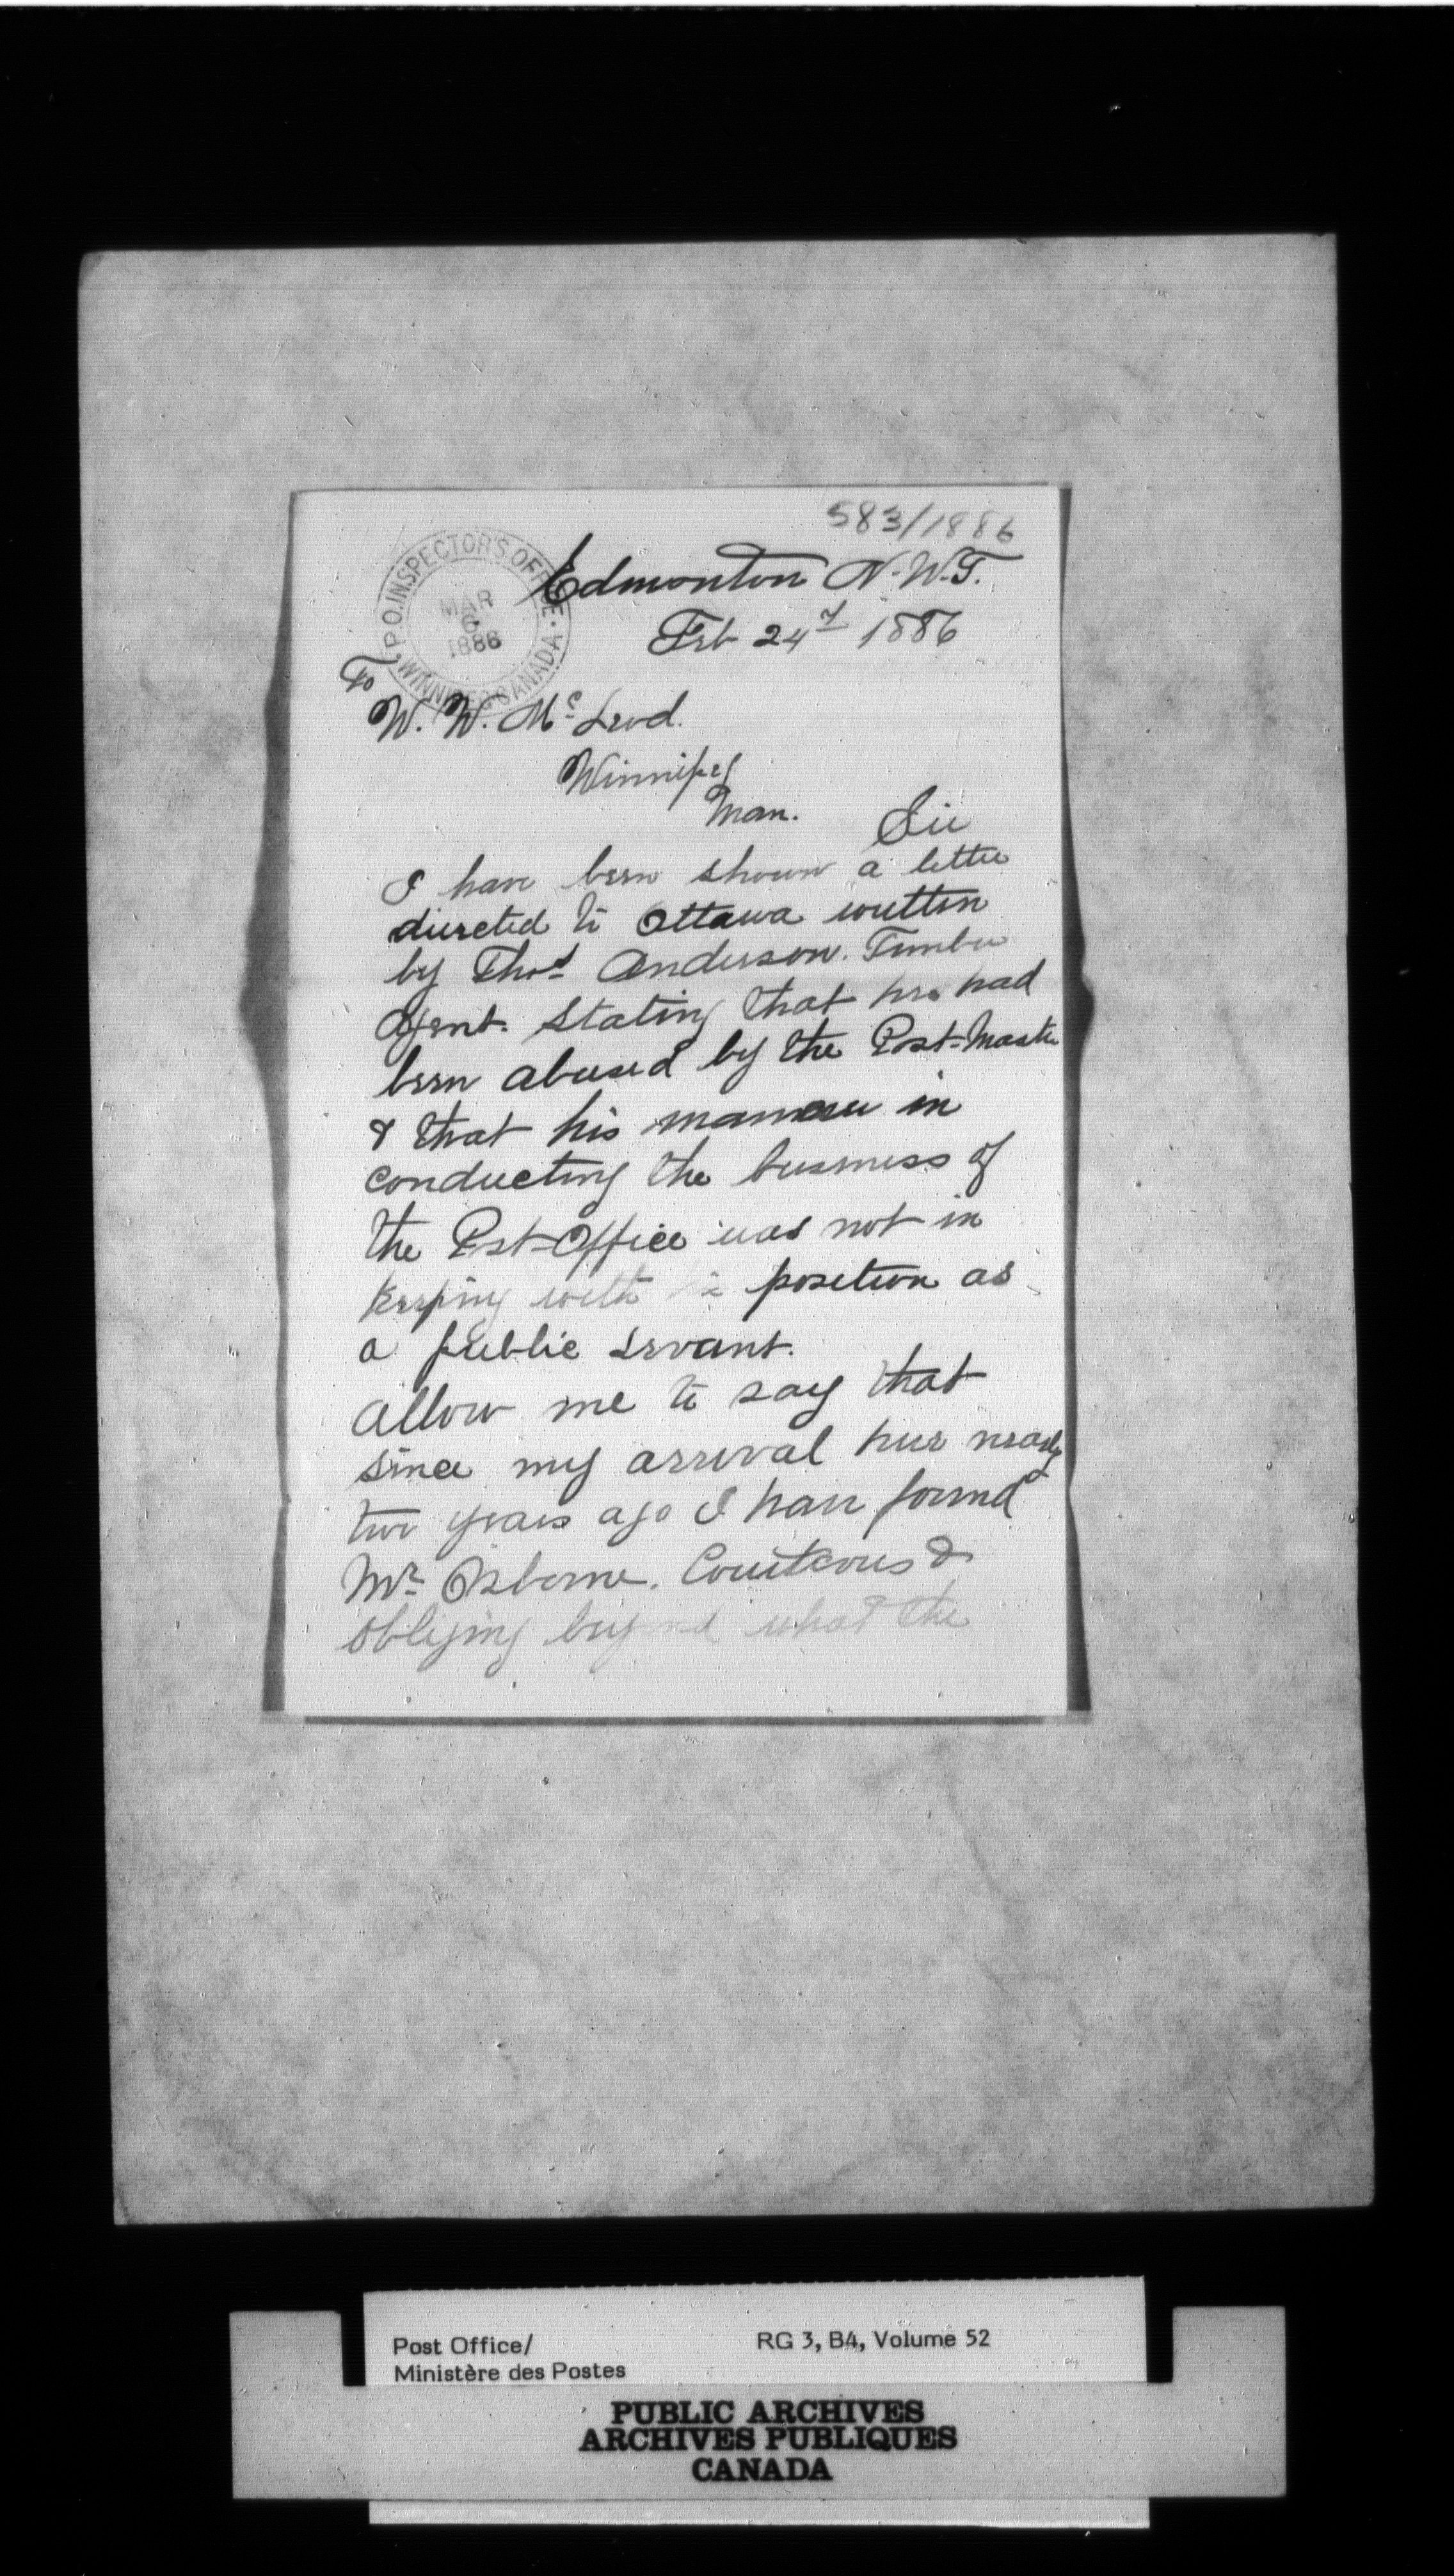 583/1886
P.O. INSPECTOR'S OFFICE. WINNIPEG CANADA
MAR
6
1886
Edmonton N.W.T.
Feb 24th 1886
To
W. W. Mc Leod.
Winnipeg
Man. Sir
I have been shown a letter
directed to Ottawa written
by Thos Anderson. Timber
Agent. Stating that he had
been abused by the Post-Master
& that his manner in
conducting the business of
the Post-Office was not in
keeping with his position as
a public servant.
Allow me to say that
since my arrival here nearly
two years ago I have found
Mr Osborne. Courteous &
obliging beyond what the
Post Office/
Ministère des Postes
RG 3, B4, Volume 52
PUBLIC ARCHIVES
ARCHIVES PUBLIQUES
CANADA